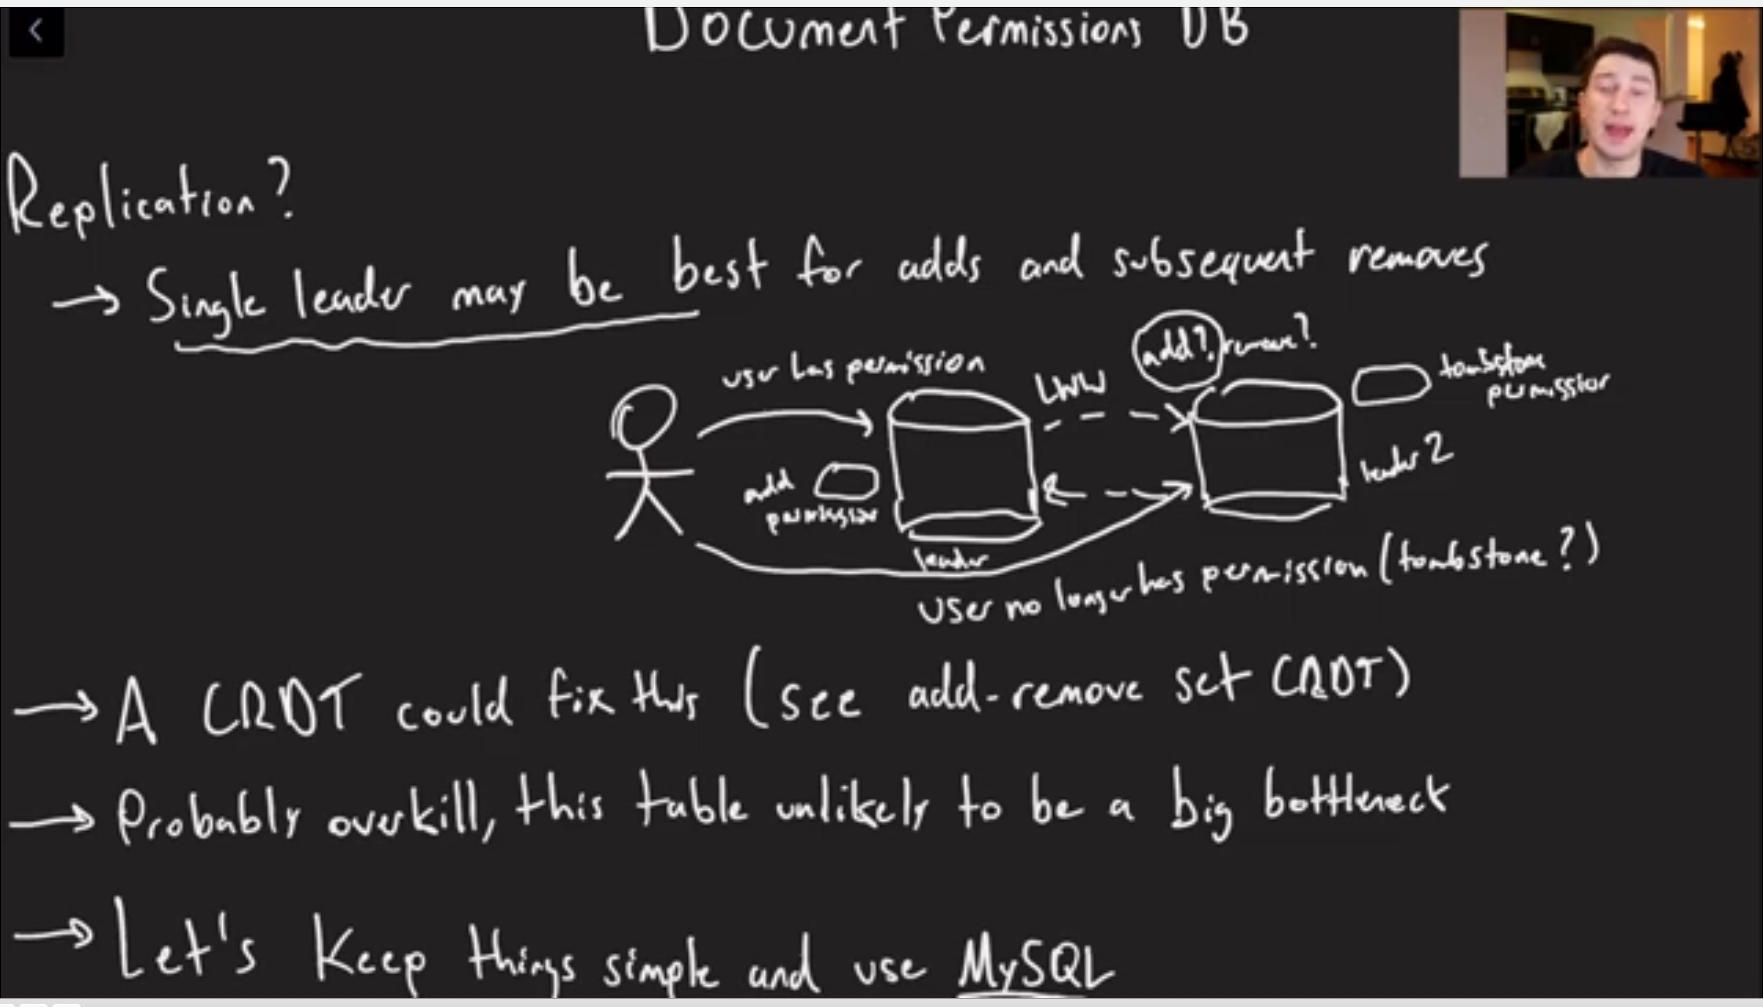 Document Permissions DB
Replication?
→ Single leader may be best for adds and subsequent removes
add?, remove?
user has permission
LWW
tombstone
permission
add
permission
leader 2
leader
user no longer has permission (tombstone?)
→ A CRDT could fix this (see add-remove set CRDT)
→ Probably overkill, this table unlikely to be a big bottleneck
→ Let's keep things simple and use MySQL